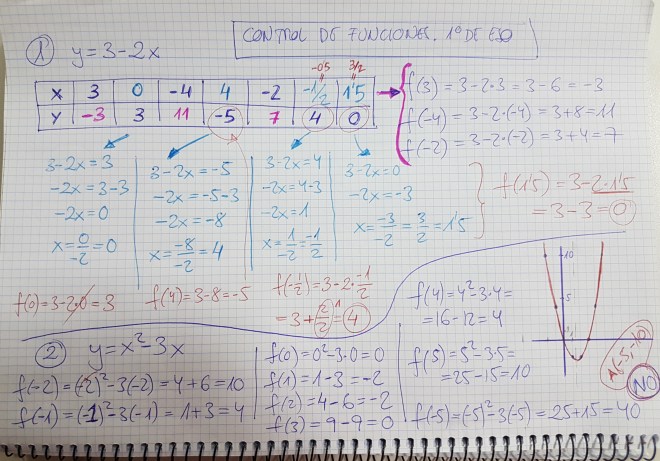 CONTROL DE FUNCIONES. 1º DE ESO
1) y = 3 - 2x
-0'5 3/2
X 3 0 -4 4 -2 -1/2 1'5
Y -3 3 11 -5 7 4 0
f(3) = 3 - 2·3 = 3 - 6 = -3
f(-4) = 3 - 2·(-4) = 3 + 8 = 11
f(-2) = 3 - 2·(-2) = 3 + 4 = 7
3 - 2x = 3
-2x = 3 - 3
-2x = 0
x = 0/-2 = 0
3 - 2x = -5
-2x = -5 - 3
-2x = -8
x = -8/-2 = 4
3 - 2x = 4
-2x = 4 - 3
-2x = 1
x = 1/-2 = -1/2
3 - 2x = 0
-2x = -3
x = -3/-2 = 3/2 = 1'5
f(1'5) = 3 - 2·1'5
= 3 - 3 = 0
f(0) = 3 - 2·0 = 3
f(4) = 3 - 8 = -5
f(-1/2) = 3 - 2·-1/2
= 3 + 2/2 1 = 4
2) y = x² - 3x
f(-2) = (-2)² - 3(-2) = 4 + 6 = 10
f(-1) = (-1)² - 3(-1) = 1 + 3 = 4
f(0) = 0² - 3·0 = 0
f(1) = 1 - 3 = -2
f(2) = 4 - 6 = -2
f(3) = 9 - 9 = 0
f(4) = 4² - 3·4 =
= 16 - 12 = 4
f(5) = 5² - 3·5 =
= 25 - 15 = 10
f(-5) = (-5)² - 3(-5) = 25 + 15 = 40
10
5
1
A(-5,-10)
NO